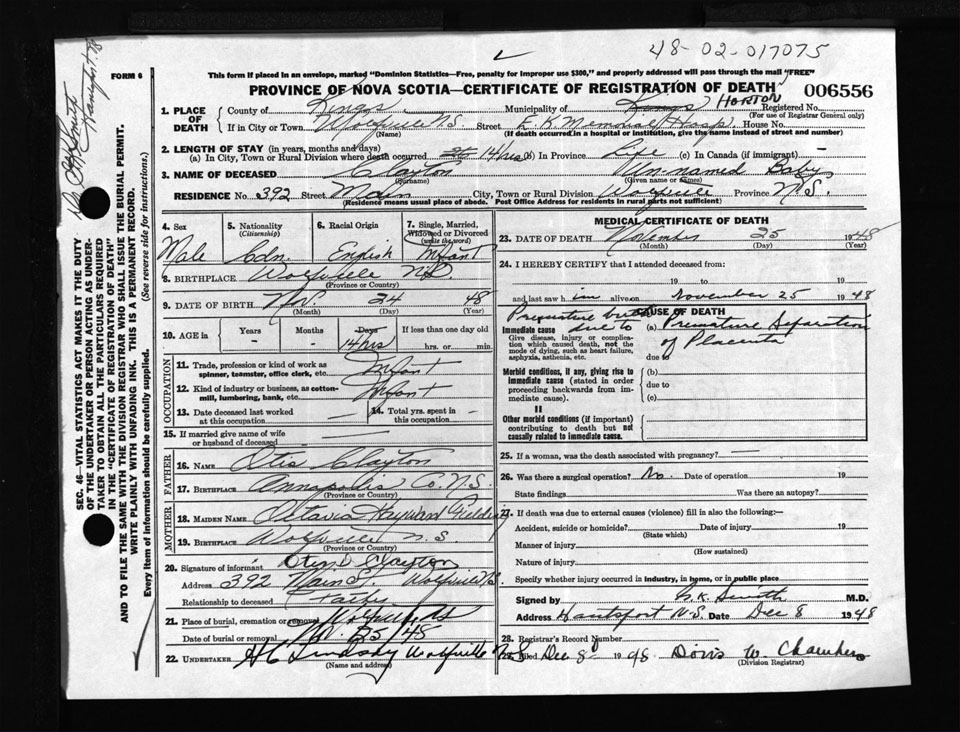 48-02-017075
FORM 6
This form if placed in an envelope, marked "Dominion Statistics—Free, penalty for improper use $300," and properly addressed will pass through the mail "FREE"
PROVINCE OF NOVA SCOTIA—CERTIFICATE OF REGISTRATION OF DEATH
006556
1. PLACE OF DEATH County of Kings Municipality of Kings HORTON Registered No.
(For use of Registrar General only)
If in City or Town Wolfville N.S. Street E. K. Memorial Hosp. House No.
(Name) (If death occurred in a hospital or institution, give the name instead of street and number)
2. LENGTH OF STAY (in years, months and days)
(a) In City, Town or Rural Division where death occurred 14 hrs (b) In Province Life (c) In Canada (if immigrant) —
3. NAME OF DECEASED Clayton Un-named Baby
(Surname) (Given name or names)
RESIDENCE No. 392 Street Main City, Town or Rural Division Wolfville Province N.S.
(Residence means usual place of abode. Post Office Address for residents in rural parts not sufficient)
4. Sex
Male
5. Nationality
(Citizenship)
Cdn.
6. Racial Origin
English
7. Single, Married,
Widowed or Divorced
(write the word)
Infant
8. BIRTHPLACE Wolfville N.S.
(Province or Country)
9. DATE OF BIRTH Nov 24 48
(Month) (Day) (Year)
10. AGE in Years Months Days If less than one day old
- - 14 hrs hrs. or min.
OCCUPATION
11. Trade, profession or kind of work as
spinner, teamster, office clerk, etc. Infant
12. Kind of industry or business, as cotton-
mill, lumbering, bank, etc. Infant
13. Date deceased last worked
at this occupation —
14. Total yrs. spent in
this occupation —
15. If married give name of wife
or husband of deceased —
FATHER
16. NAME Otis Clayton
17. BIRTHPLACE Annapolis Co. N.S.
(Province or Country)
MOTHER
18. MAIDEN NAME Hayward
19. BIRTHPLACE Wolfville N.S.
(Province or Country)
20. Signature of informant Otis D. Clayton
Address 392 Main St. Wolfville N.S.
Relationship to deceased Father
21. Place of burial, cremation or removal Wolfville N.S.
Date of burial or removal Nov. 25/48
22. UNDERTAKER H C Lindsay Wolfville N.S.
(Name and address)
MEDICAL CERTIFICATE OF DEATH
23. DATE OF DEATH November 25 1948
(Month) (Day) (Year)
24. I HEREBY CERTIFY that I attended deceased from:
19 to 19
and last saw him alive on November 25 1948
CAUSE OF DEATH
Premature birth
due to
Immediate cause (a) Premature Separation
of Placenta
Give disease, injury or complica-
tion which caused death, not the
mode of dying, such as heart failure,
asphyxia, asthenia, etc.
due to
Morbid conditions, if any, giving rise to
immediate cause (stated in order
proceeding backwards from im-
mediate cause).
(b)
due to
(c)
II
Other morbid conditions (if important)
contributing to death but not
causally related to immediate cause.
25. If a woman, was the death associated with pregnancy? —
26. Was there a surgical operation? No. Date of operation 19
State findings Was there an autopsy?
27. If death was due to external causes (violence) fill in also the following:—
Accident, suicide or homicide? Date of injury 19
(State which)
Manner of injury
(How sustained)
Nature of injury
Specify whether injury occurred in industry, in home, or in public place
Signed by G. K. Smith M.D.
Address Hantsport N.S. Date Dec 8 1948
28. Registrar's Record Number
Filed Dec 8 1948 Doris W. Chambers
(Division Registrar)
SEC. 46—VITAL STATISTICS ACT MAKES IT THE DUTY
OF THE UNDERTAKER OR PERSON ACTING AS UNDER-
TAKER TO OBTAIN ALL THE PARTICULARS REQUIRED
IN THE "CERTIFICATE OF REGISTRATION OF DEATH"
AND TO FILE THE SAME WITH THE DIVISION REGISTRAR WHO SHALL ISSUE THE BURIAL PERMIT.
WRITE PLAINLY WITH UNFADING INK. THIS IS A PERMANENT RECORD.
Every item of information should be carefully supplied. (See reverse side for instructions.)